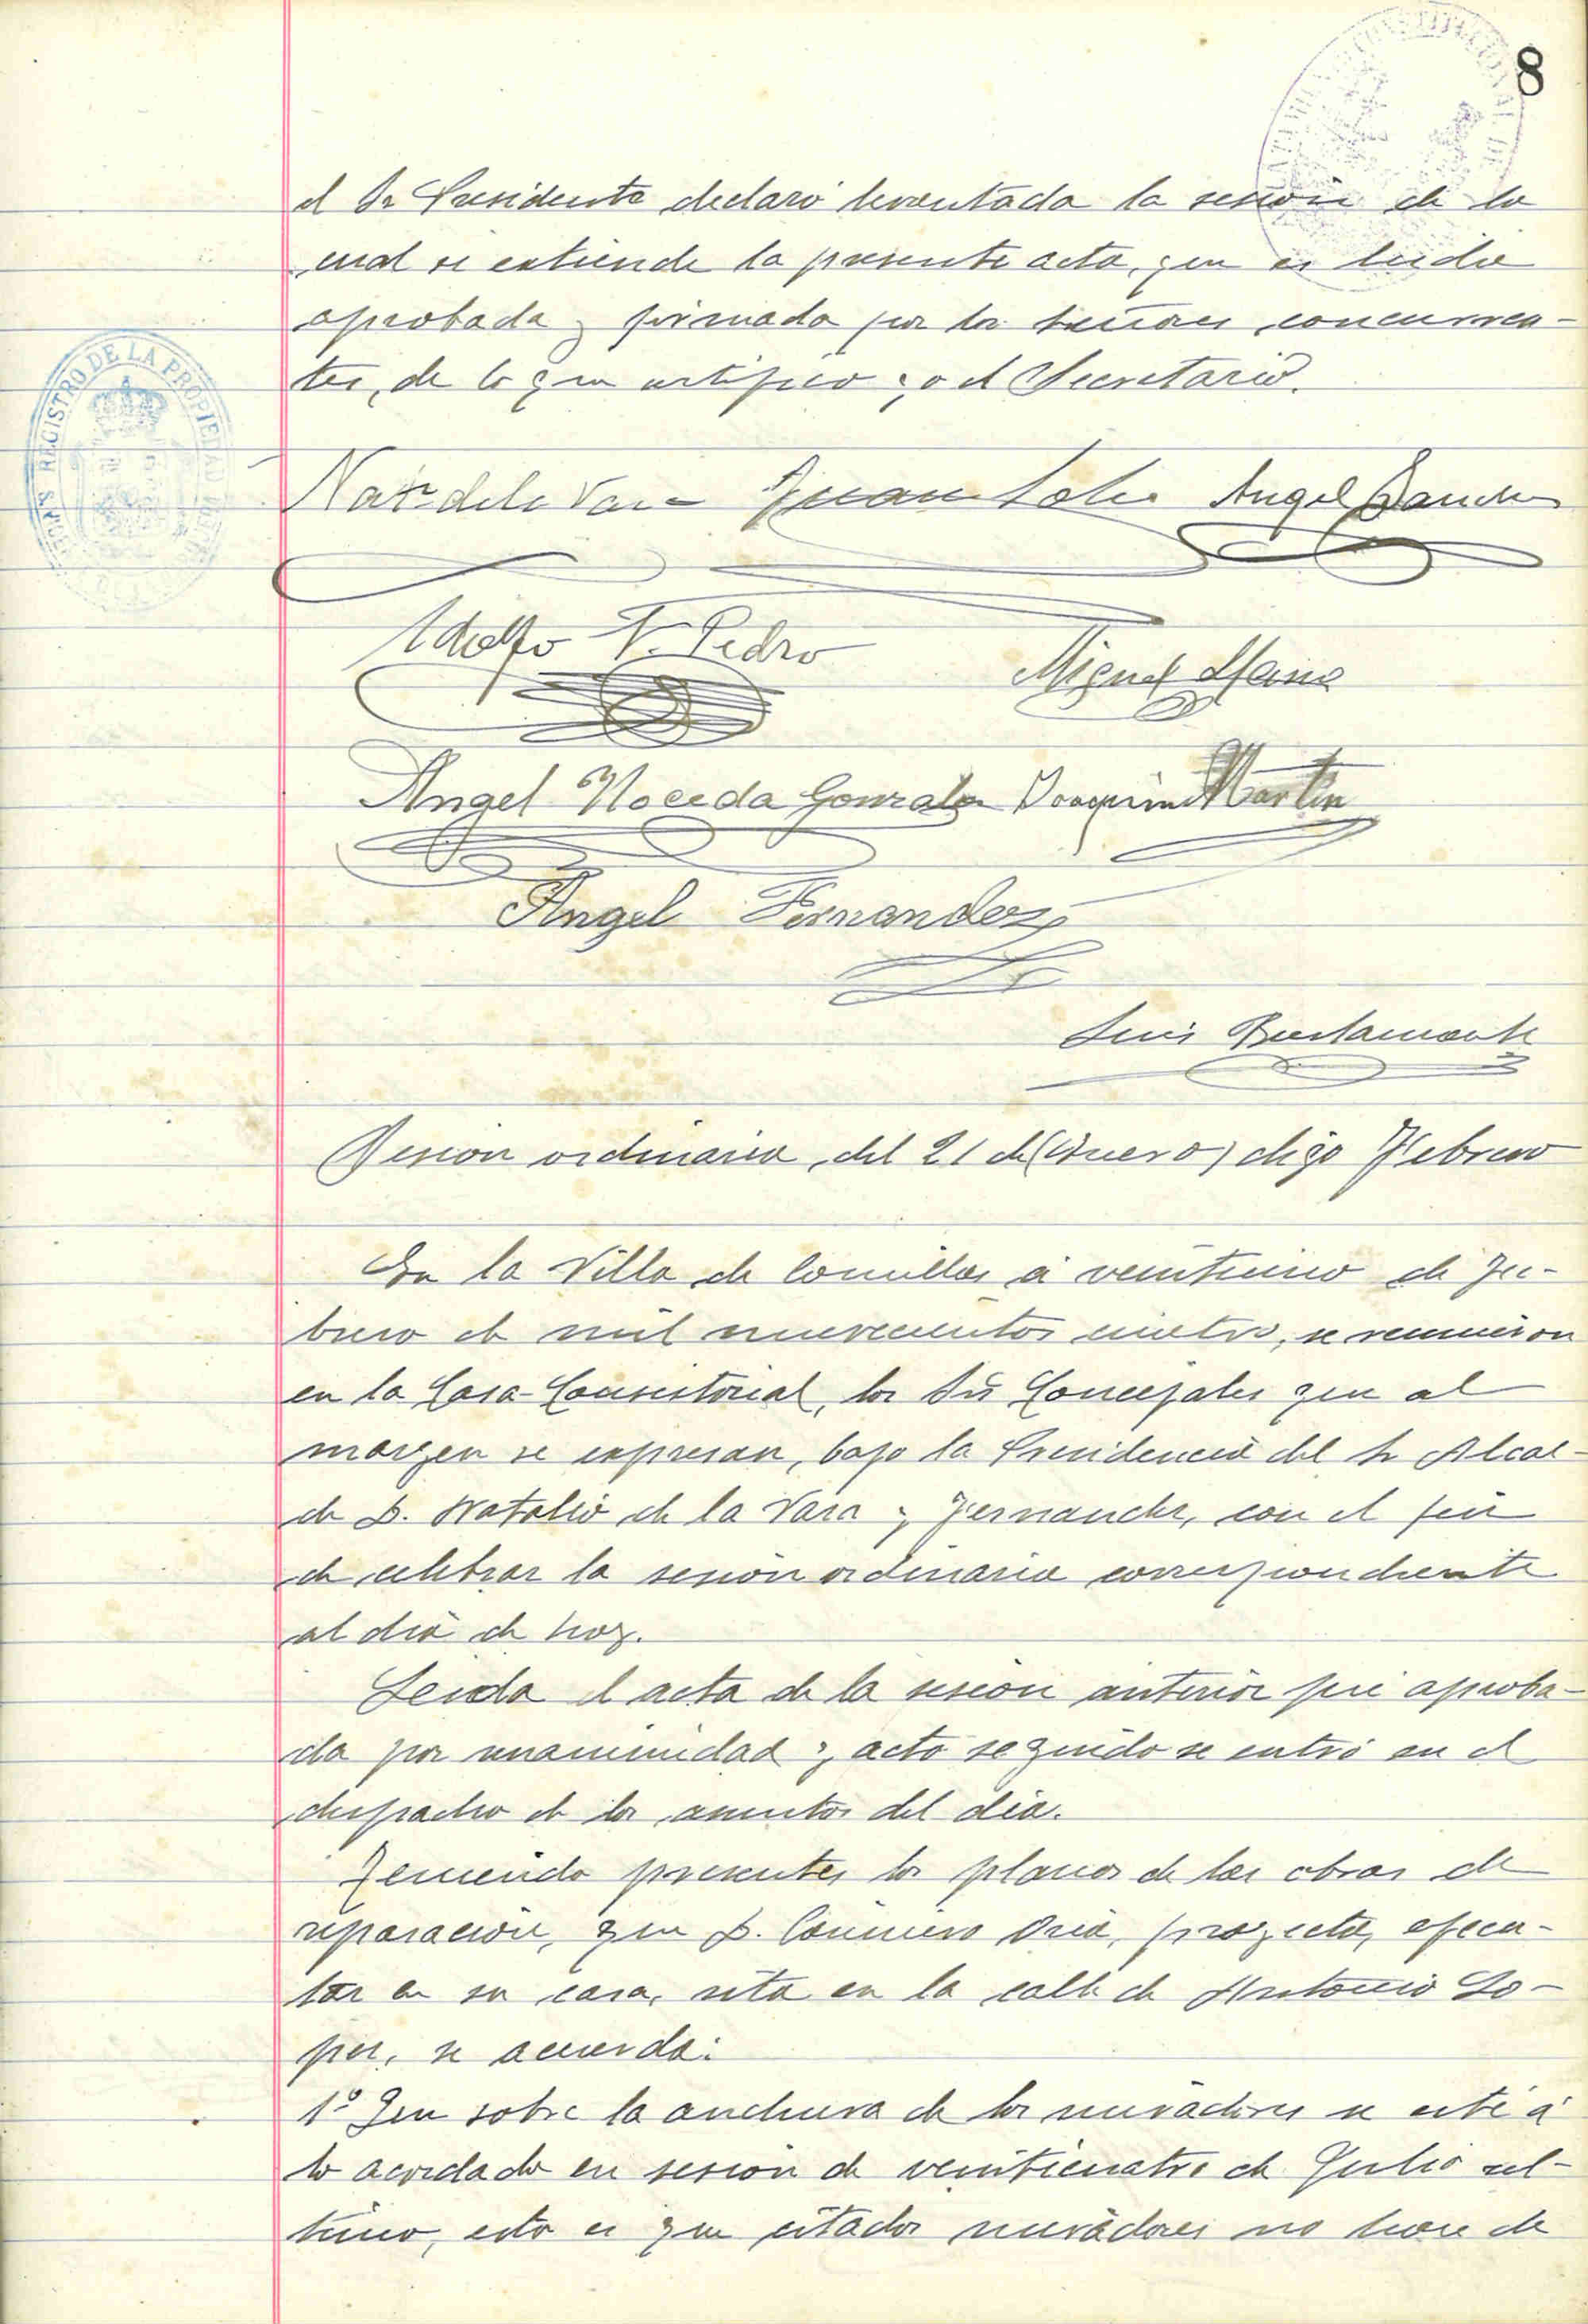 8
el Sr Presidente declaró levantada la sesión de la
cual se extiende la presente acta, que es leida
aprobada y firmada por los señores concurren-
tes, de lo que certifico yo el Secretario.
REGISTRO DE LA PROPIEDAD
Nat. de la Vara Juan Angel Sanchez
Adolfo V. Pedro
Miguel
Angel Noceda Gonzalez Joaquin Martin
Angel Fernandez
Luis Bustamante
Sesion ordinaria del 21 de (Enero) digo Febrero
En la Villa de Comillas á veintiuno de Fe-
brero de mil novecientos cuatro, se reunieron
en la Casa-Consistorial, los Srs Concejales que al
margen se expresan, bajo la Presidencia del Sr Alcal-
de D. Natalio de la Vara y Fernandez, con el fin
de celebrar la sesión ordinaria correspondiente
al dia de hoy.
Leida el acta de la sesión anterior fue aproba-
da por unanimidad y acto seguido se entró en el
despacho de los asuntos del dia.
Teniendo presentes los planos de las obras de
reparación, que D. Casimiro Oria, proyecta, ejecu-
tar en su casa, sita en la calle de Antonio Lo-
pez, se acuerda:
1º Que sobre la anchura de los miradores se esté á
lo acordado en sesión de veinticuatro de Julio úl-
timo, esto es que citados miradores no han de